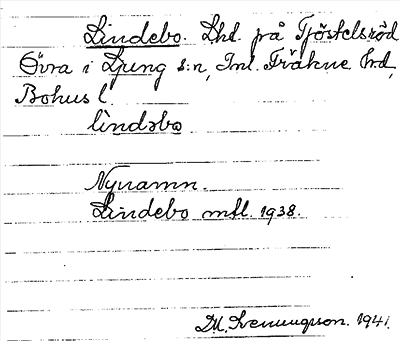 Lindebo. Lhl. på Tjöstelsröd
Övra i Ljung s:n, Inl. Fräkne hd,
Bohus l.
lìndəbo
Nynamn.
Lindebo mtl. 1938.
D.M. Svenungsson. 1941.